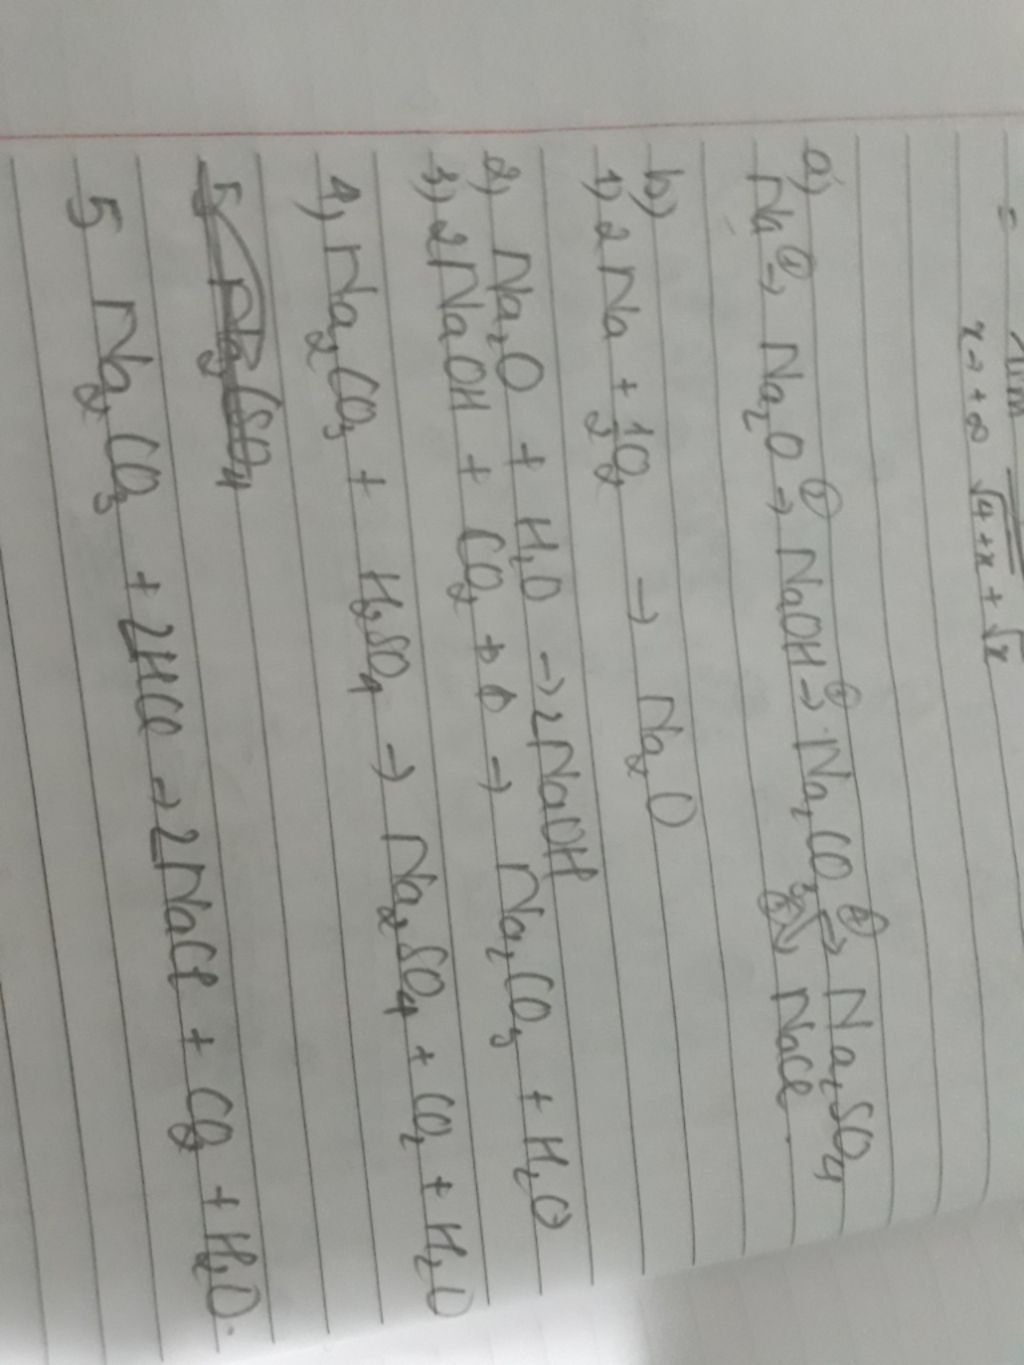 = lim
x → +∞ √4+x + √x
a)
Na ①→ Na₂O ②→ NaOH → Na₂CO₃ ④→ Na₂SO₄
→ NaCl.
b)
1) 2Na + 1/2 O₂ → Na₂O
2) Na₂O + H₂O → 2NaOH
3) 2NaOH + CO₂ → Na₂CO₃ + H₂O
4) Na₂CO₃ + H₂SO₄ → Na₂SO₄ + CO₂ + H₂O
5 Na₂CO₃ + 2HCl → 2NaCl + CO₂ + H₂O.